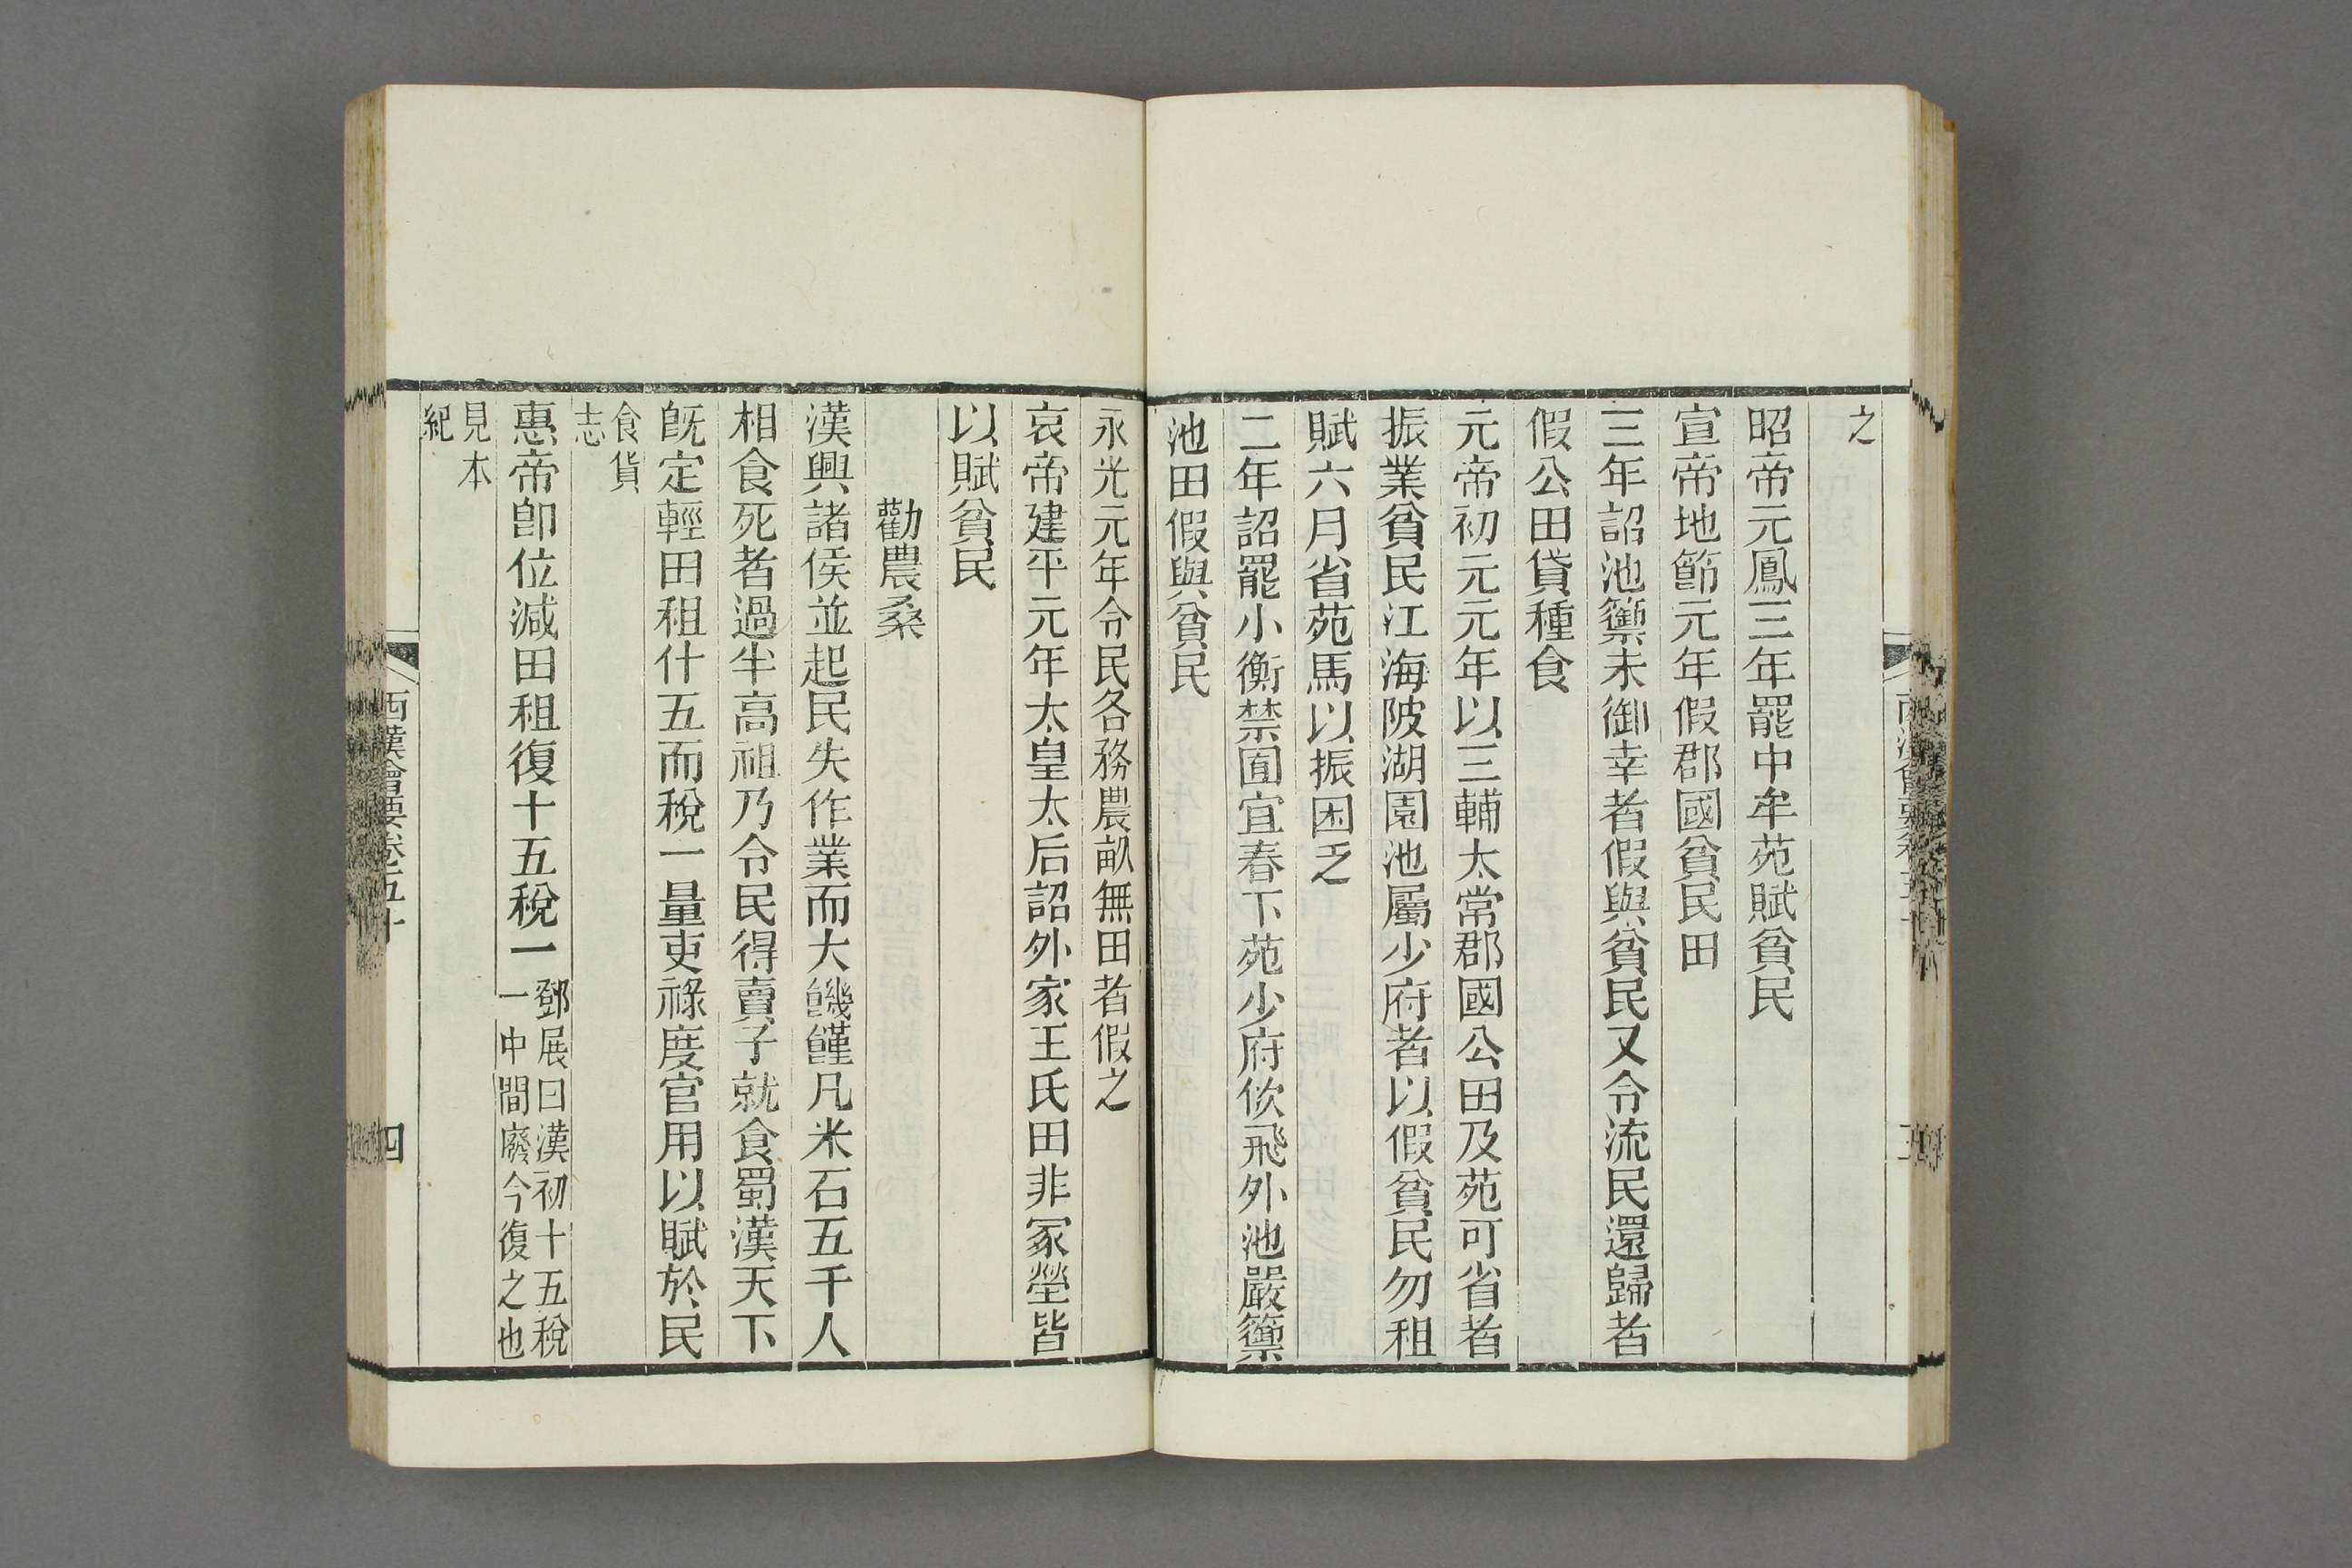 之
昭帝元鳳三年罷中牟苑賦貧民
宣帝地節元年假郡國貧民田
三年詔池籞未御幸者假與貧民又令流民還歸者
假公田貸種食
元帝初元元年以三輔太常郡國公田及苑可省者
振業貧民江海陂湖園池屬少府者以假貧民勿租
賦六月省苑馬以振困乏
二年詔罷小衡禁囿宜春下苑少府佽飛外池嚴籞
池田假與貧民
永光元年令民各務農畝無田者假之
哀帝建平元年太皇太后詔外家王氏田非冢塋皆
以賦貧民
勸農桑
漢興諸侯並起民失作業而大饑饉凡米石五千人
相食死者過半高祖乃令民得賣子就食蜀漢天下
旣定輕田租什五而稅一量吏祿度官用以賦於民
食貨
志
惠帝卽位減田租復十五稅一
鄧展曰漢初十五稅
一中間廢今復之也
見本
紀
西漢會要卷五十
四